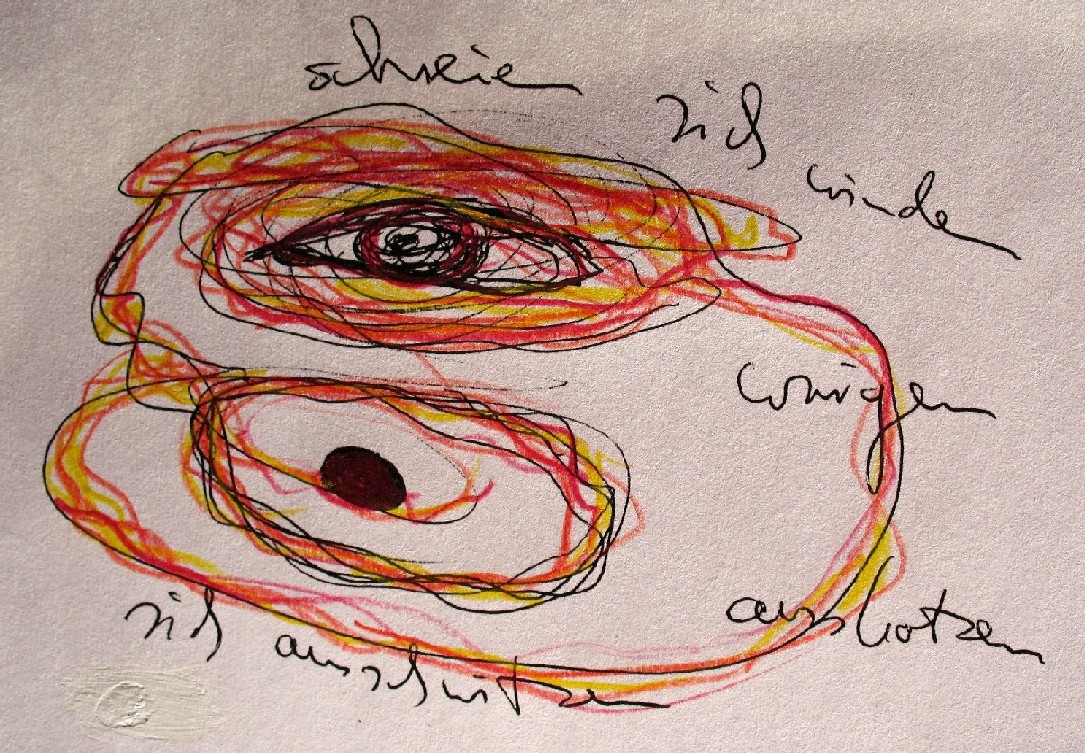 schreien
sich winden
würgen
auskotzen
sich ausschwitzen